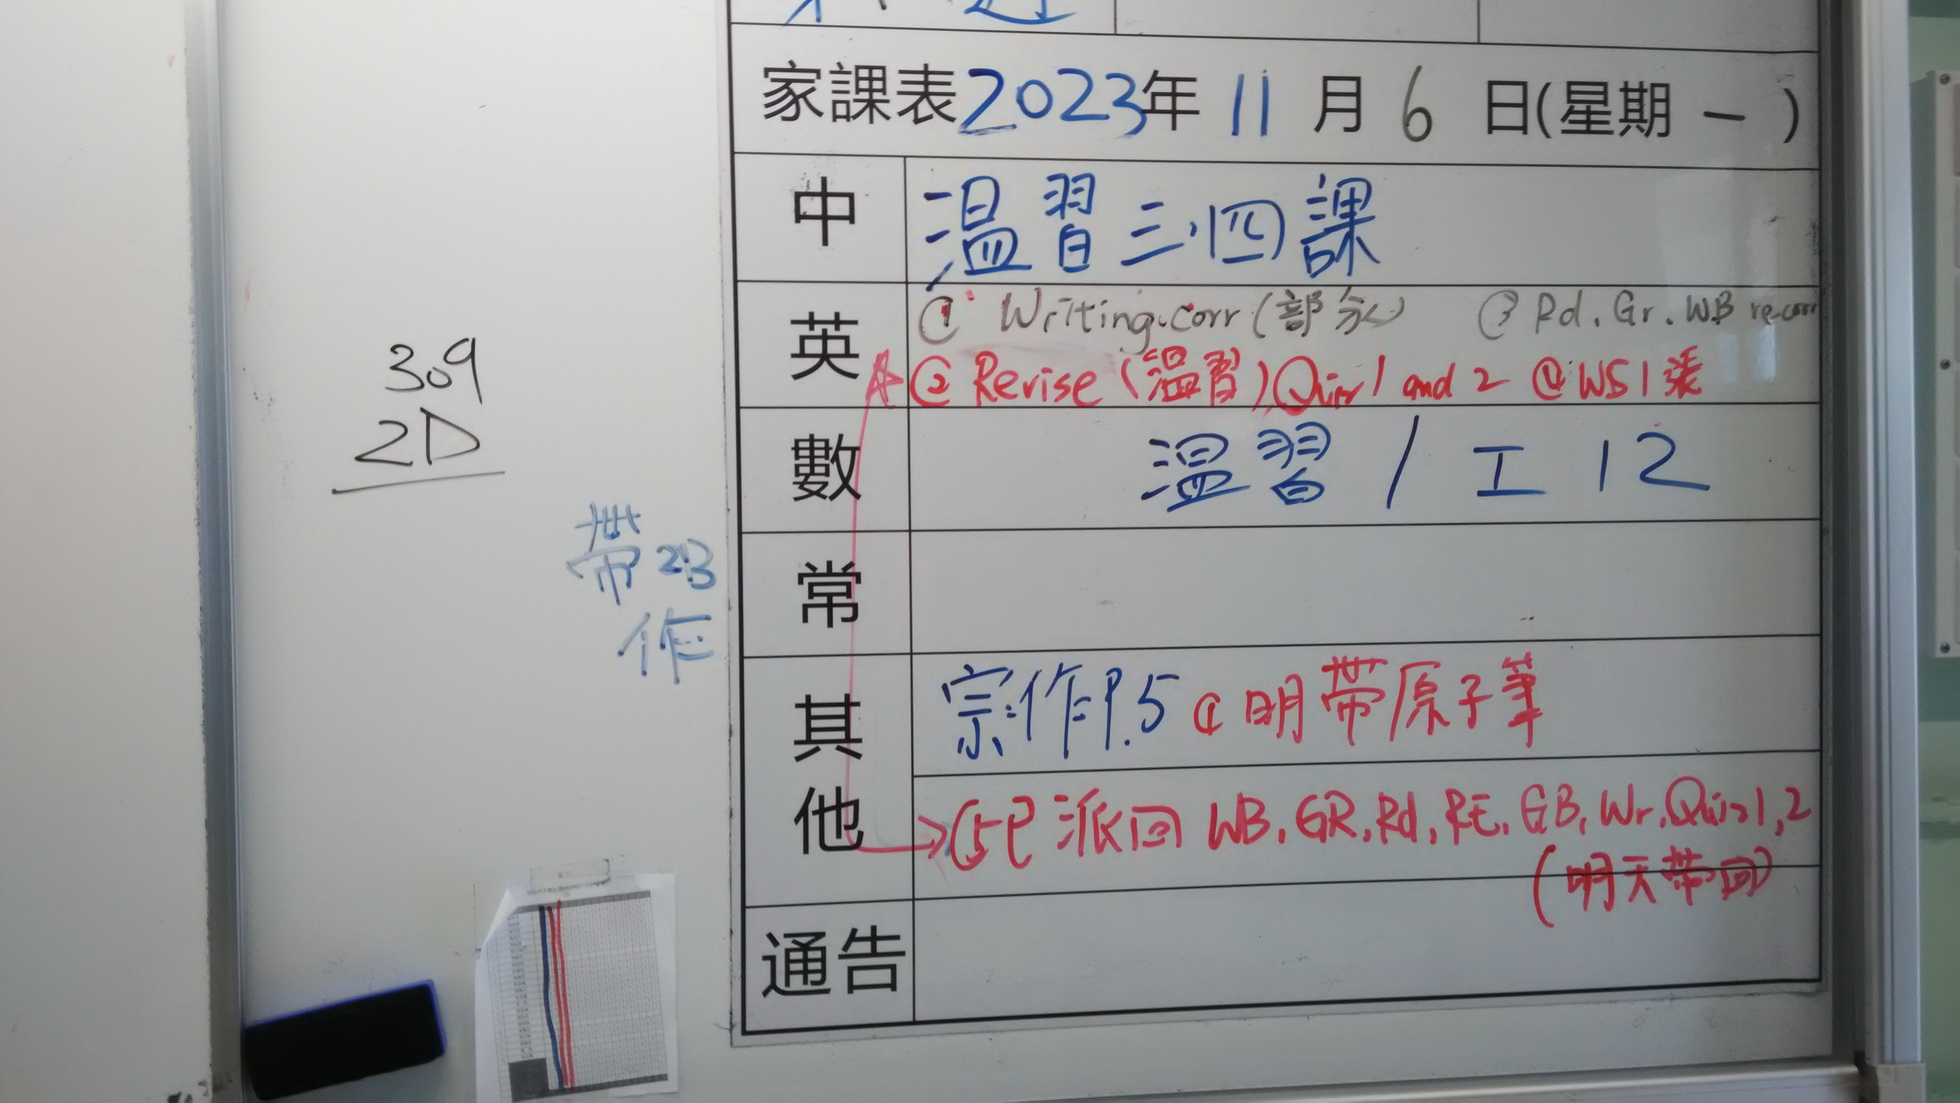 家課表2023年 11 月 6 日(星期 一 )
中 温習三、四課
英 ① Writing.corr (部分) ③ Rd. Gr. WB re-corr
② Revise (温習) Quiz 1 and 2 ④ WS 1張
數 温習 / 工 12
常
其他 宗:作P.5 明帶原子筆
⑤已派回 WB. GR. Rd. RE. GB. Wr. Quiz 1, 2
(明天帶回)
通告
309
2D
帶
作